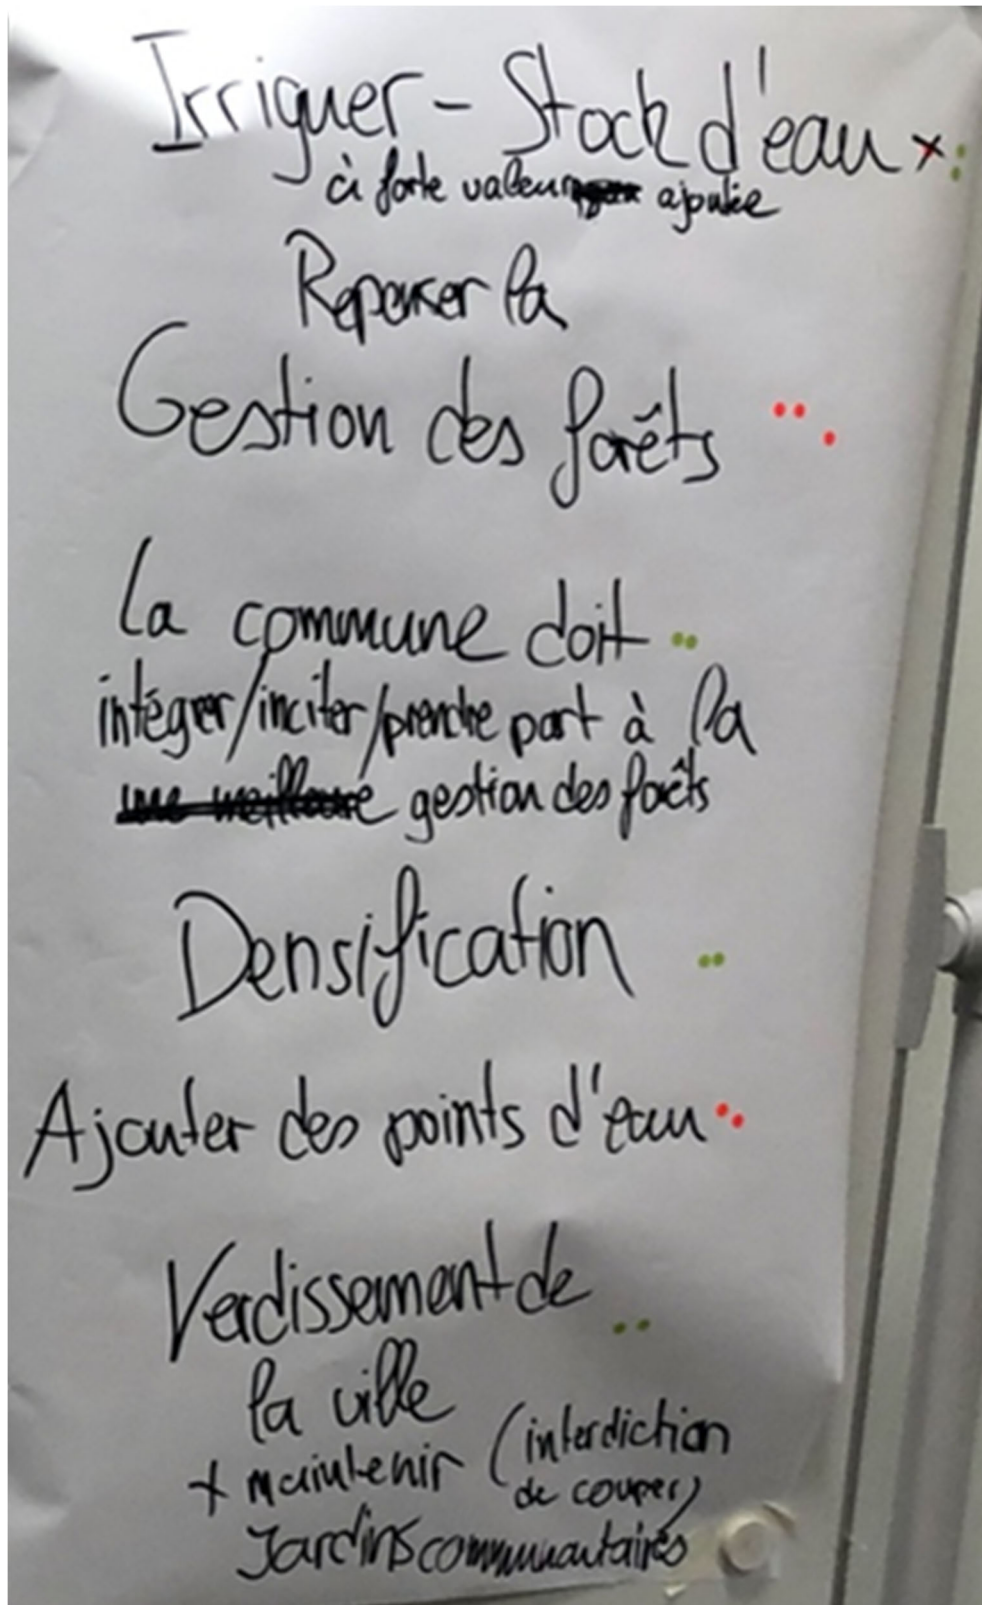 Irriguer - Stock d'eau x
à forte valeur ajoutée
Repenser la
Gestion des forêts
La commune doit
intégrer/inciter/prendre part à la
une meilleure gestion des forêts
Densification
Ajouter des points d'eau
Verdissement de
la ville
+ maintenir (interdiction
de couper)
Jardins communautaires